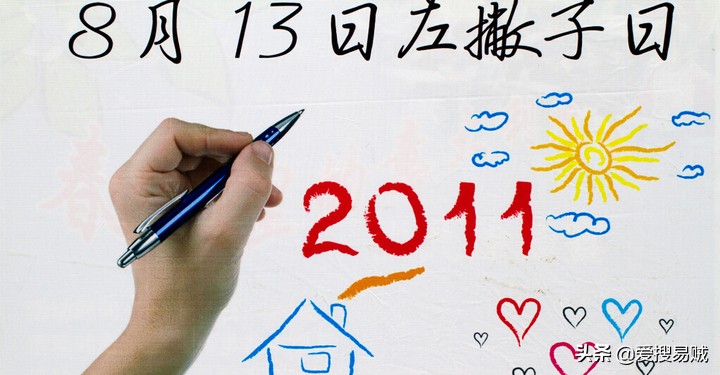 8月13日左撇子日
2011
头条 @爱搜易贼